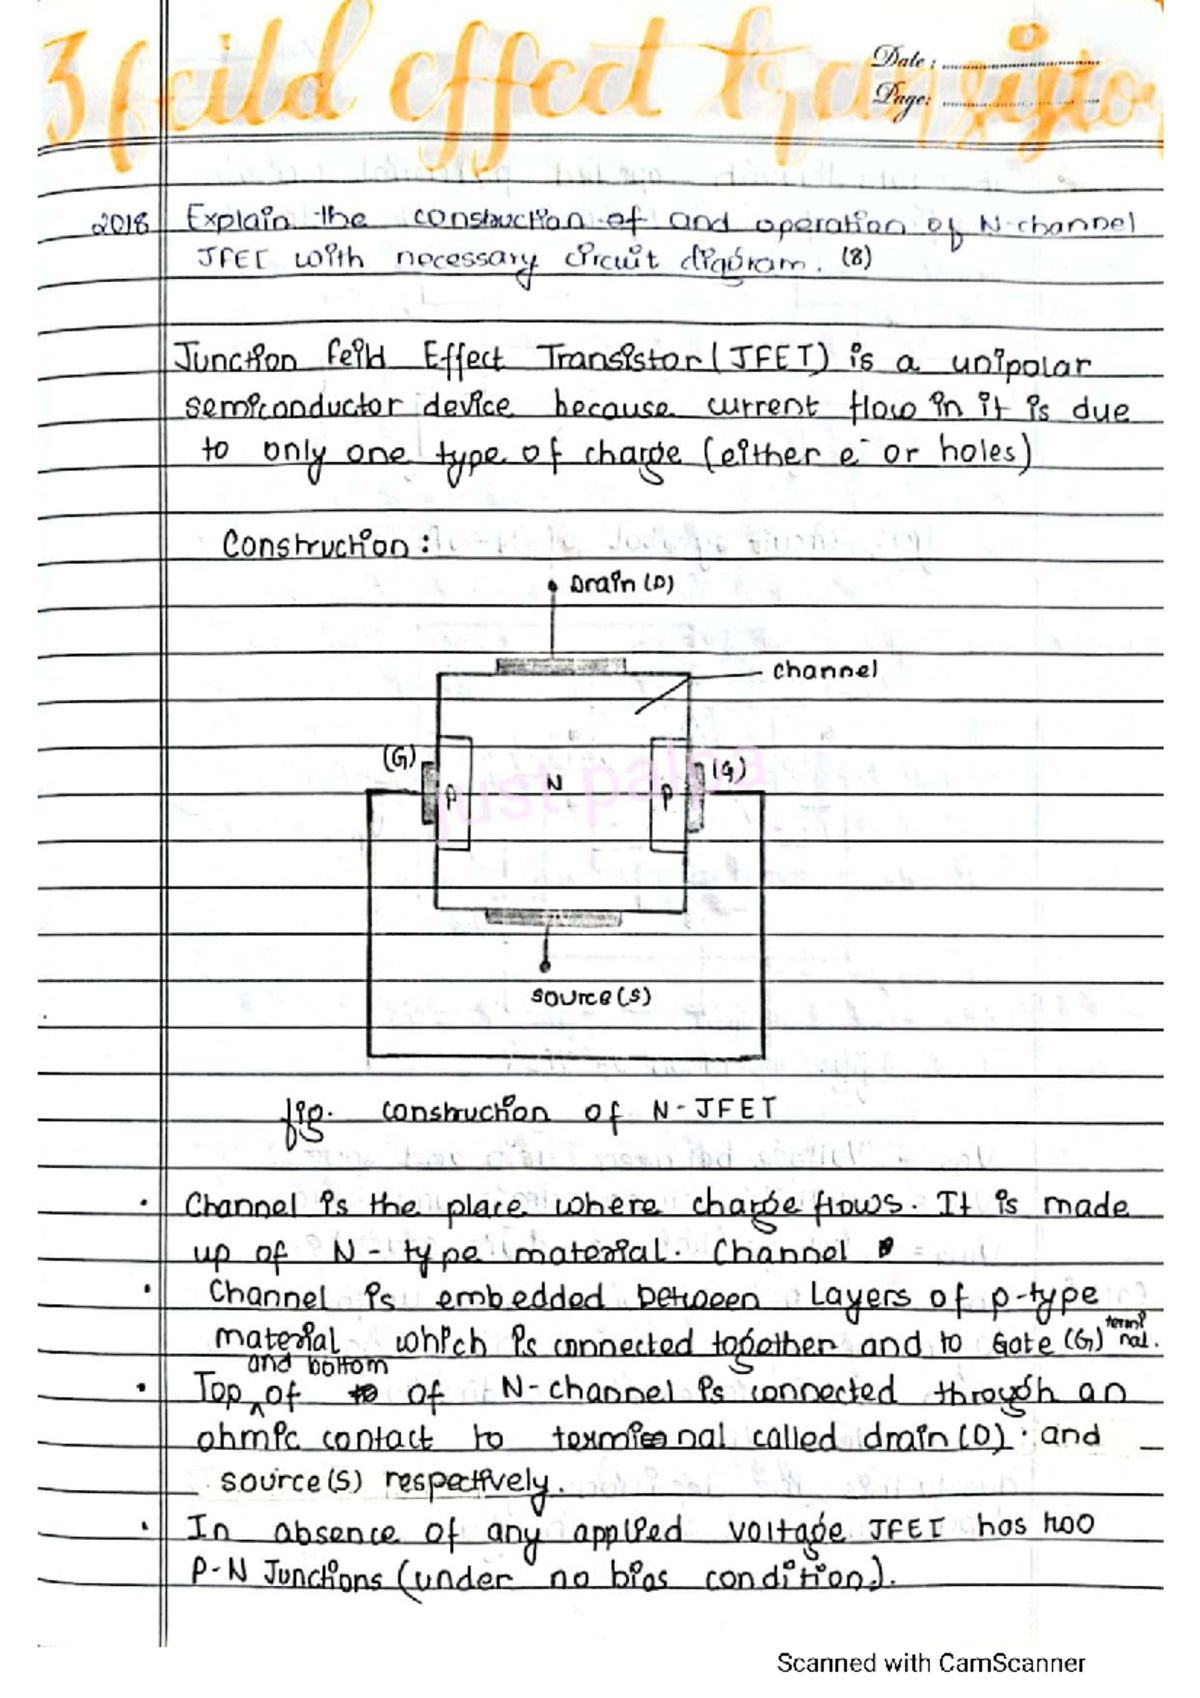 3 feild effect transisto
Date :
Page:
2018 Explain the construction of and operation of N-channel
JFET with necessary circuit diagram. (8)
Junction feild Effect Transistor (JFET) is a unipolar
semiconductor device because current flow in it is due
to only one type of charge (either e⁻ or holes)
Construction :
Drain (D)
channel
(G)
(G)
P
N
P
just.palpa
source (S)
fig. construction of N-JFET
• Channel is the place where charge flows. It is made
up of N-type material. Channel
• Channel is embedded between Layers of p-type
material which is connected together and to Gate (G) terminal.
and bottom
• Top of of N-channel is connected through an
ohmic contact to terminal called drain (D) and
source (S) respectively.
• In absence of any applied voltage JFET has two
P-N Junctions (under no bias condition).
Scanned with CamScanner